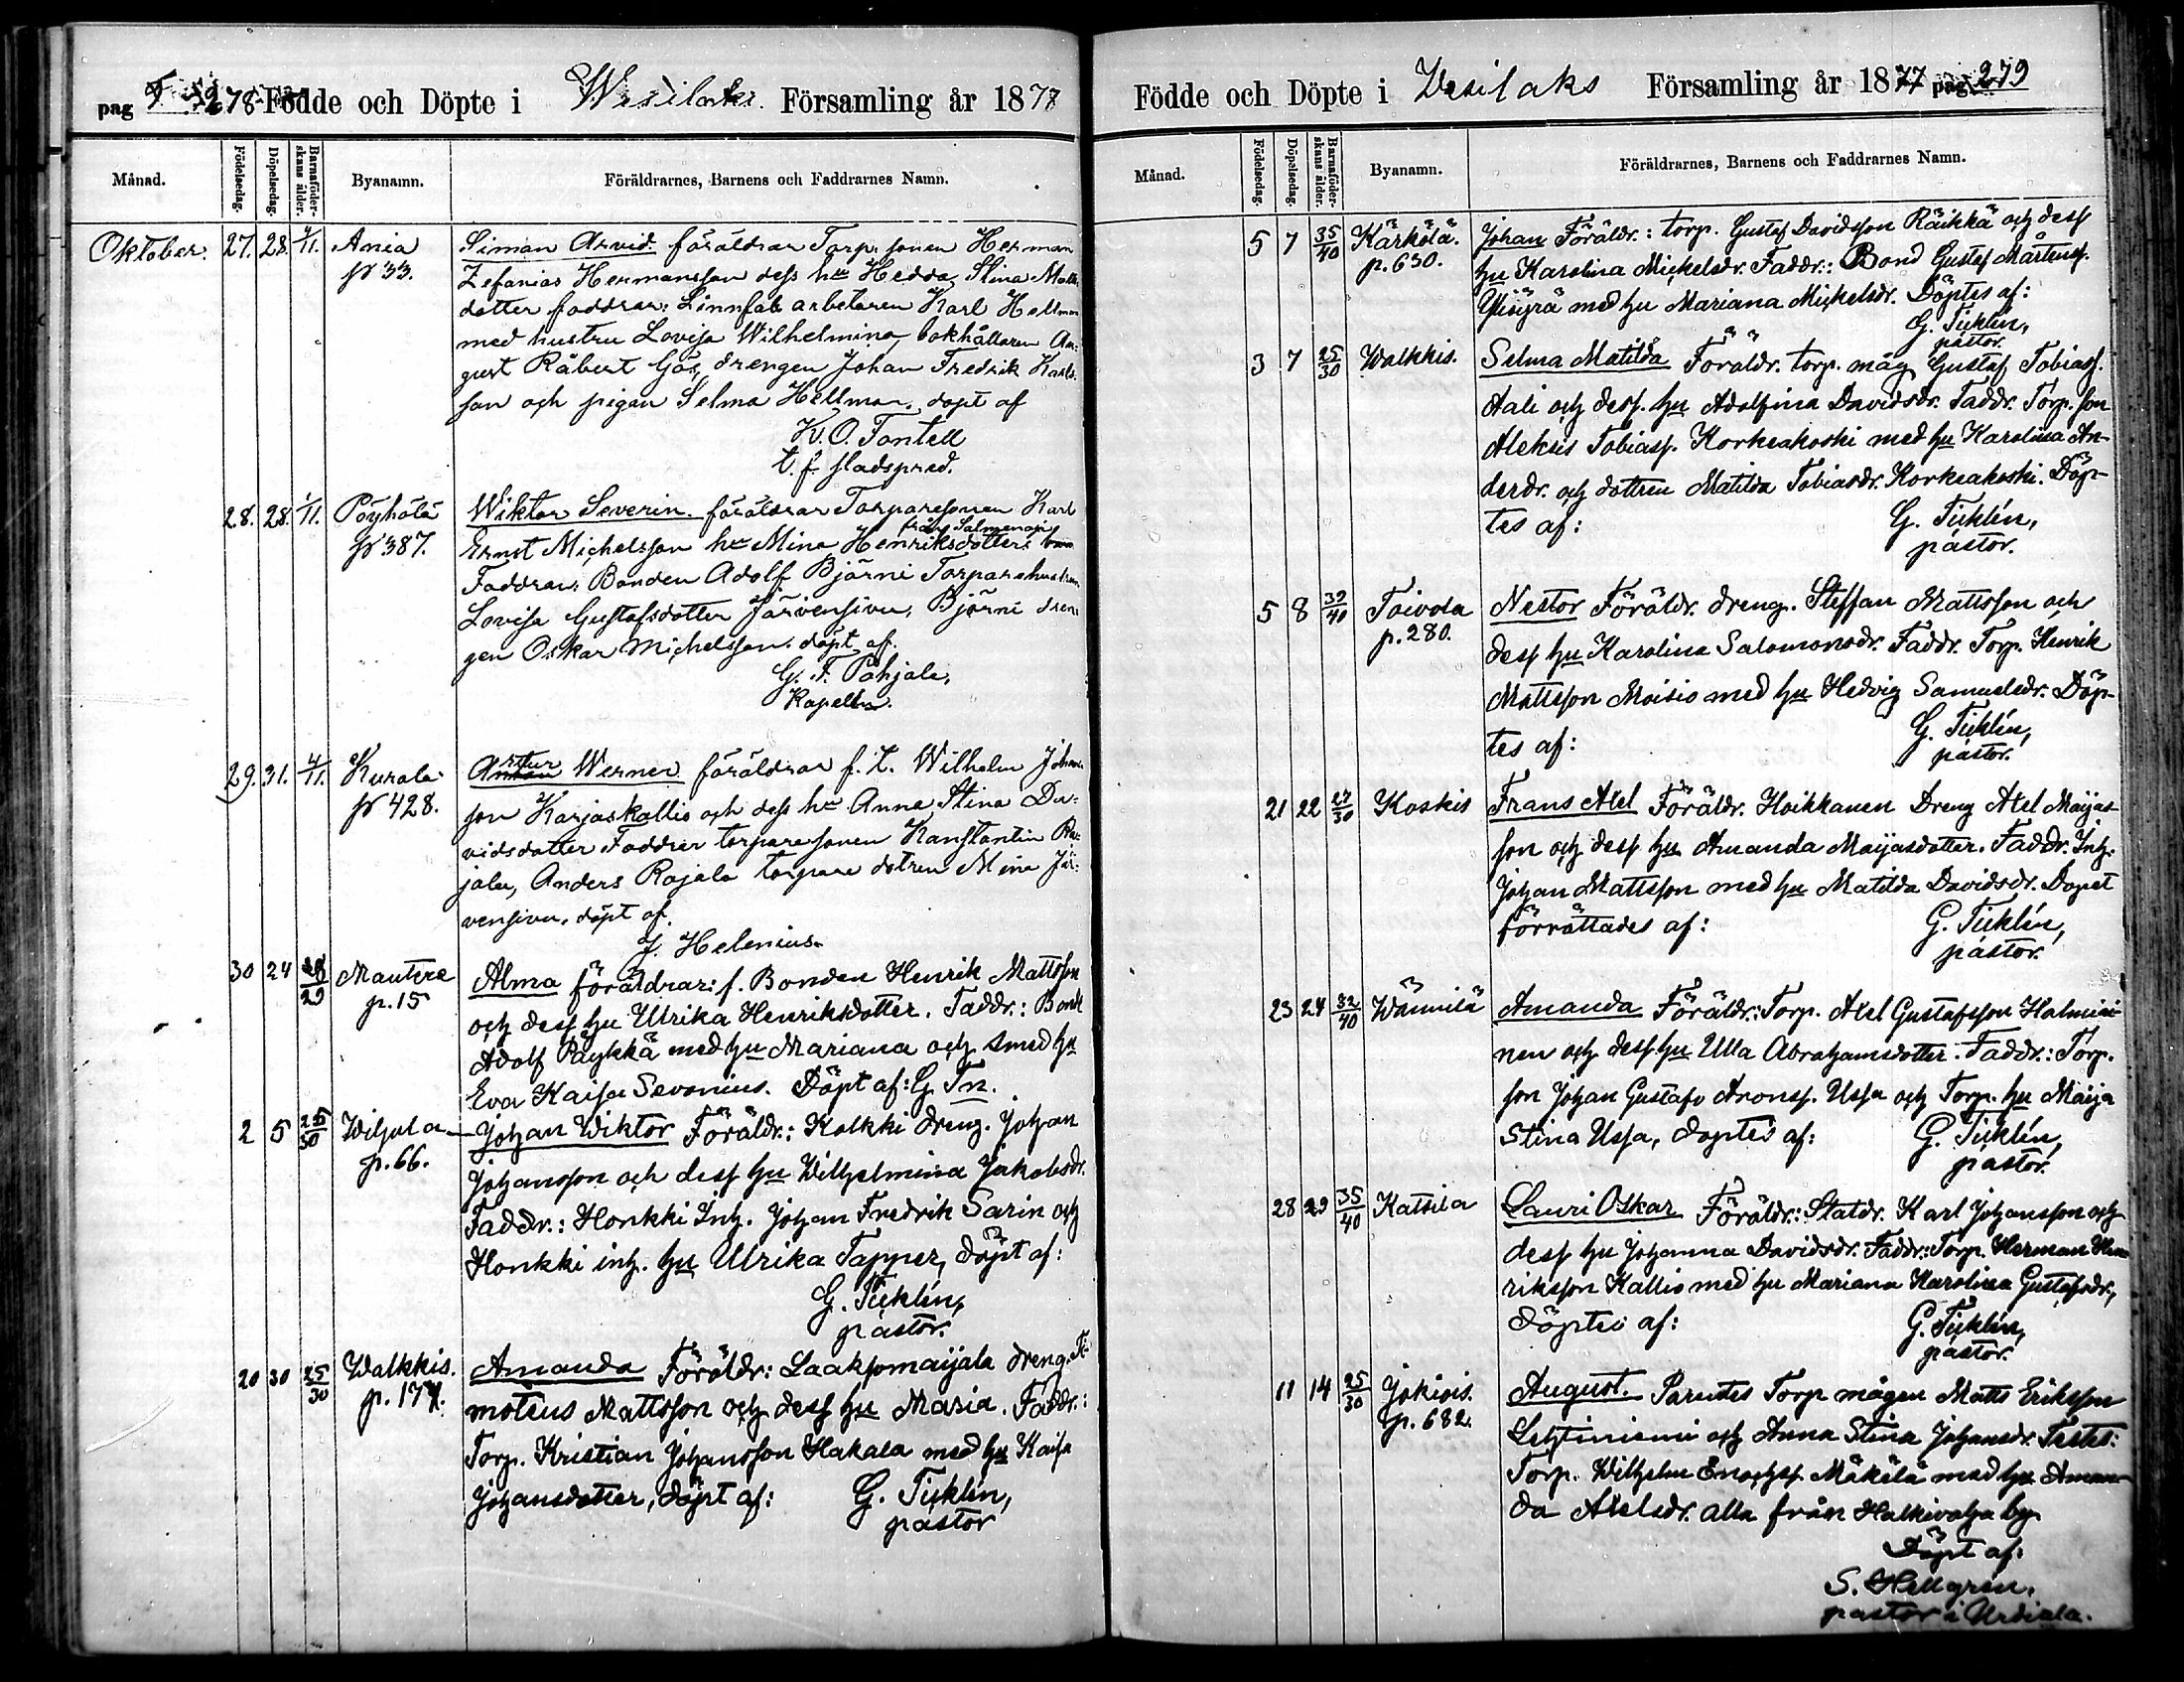 pag 278 Födde och Döpte i Wesilaks Församling år 1877
Månad. Födelsedag. Döpelsedag. Barnaföderskans ålder. Byanamn. Föräldrarnes, Barnens och Faddrarnes Namn.
Oktober. 27. 28. Ania Siman Arvid. föräldrar Torp. sonen Herman
p 33. Zefanias Hermansson dess hu Hedda Stina Matts
dotter faddrar: Linnfab arbetaren Karl Hellman
med hustru Lovisa Wilhelmina, bokhållaren Au-
gust Råbert Gös, drengen Johan Fredrik Karls-
son och pigan Selma Hellman. döpt af
K. O. Fontell
t. f. stadspred.
28. 28. 1/11. Pöyhölä Wiktor Severin. föräldrar Torparesonen Karl
p 387. Ernst Michelsson hu Mina Henriksdotter från Salmenoja
Faddrar: Bonden Adolf Björni Torparehustrun
Lovisa Gustafsdotter Järvensivu, Björni dren-
gen Oskar Michelsson. döpt af.
G. F. Pohjala,
Kapellan.
29. 31. 4/11. Kurala Artur Werner föräldrar f. t. Wilhelm Johans
p 428. son Karjaskallio och dess hu Anna Stina Da-
vidsdotter Faddrar torparesonen Konstantin Ra-
jala, Anders Rajala torpare dotren Mina Jär-
vensivu. döpt af.
J. Helenius.
30 24 Mantere Alma föräldrar: f. Bonden Henrik Mattsson
p. 15 och dess hu Ulrika Henriksdotter. Faddr.: Bond
Adolf Päykkä med hu Mariana och smed hu
Eva Kaisa Sevonius. Döpt af: G. Tn.
2 5 25/30 Wiljala Johan Wiktor Föräldr.: Kolkki dreng. Johan
p. 66. Johansson och dess hu Wilhelmina Jakobsdr.
Faddr.: Honkki Inh. Johan Fredrik Sarin och
Honkki inh. hu Ulrika Tapper, döpt af:
G. Ticklén,
pastor.
20 30 25/30 Walkkis. Amanda Föräldr: Laaksomaijala dreng. Ti-
p. 177. moteus Mattsson och dess hu Maria. Faddr.:
Torp. Kristian Johansson Hakala med hu Kaisa
Johansdotter, döpt af: G. Ticklén,
pastor
Födde och Döpte i Wesilaks Församling år 1877 pag 279
Månad. Födelsedag. Döpelsedag. Barnaföderskans ålder. Byanamn. Föräldrarnes, Barnens och Faddrarnes Namn.
5 7 35/40 Kärkölä. Johan Föräldr.: torp. Gustaf Davidsson Räikkä och dess
p. 630. hu Karolina Mickelsdr. Faddr.: Bond Gustaf Mårtenss.
med hu Mariana Mickelsdr. Döptes af:
G. Ticklén,
pastor.
3 7 25/30 Walkkis. Selma Matilda Föräldr. torp. måg Gustaf Tobiass.
Aali och dess hu Adolfina Davidsdr. Faddr. Torp. son
Aleksis Tobiass. Korkeakoski med hu Karolina An-
dersdr. och dottren Matilda Tobiasdr. Korkeakoski. Döp-
tes af: G. Ticklén,
pastor.
5 8 39/40 Toivola Nestor Föräldr. dreng. Steffan Mattsson och
p. 280. dess hu Karolina Salomonsdr. Faddr. Torp. Henrik
Mattsson Moisio med hu Hedvig Samuelsdr. Döp-
tes af: G. Ticklén,
pastor.
21 22 27/30 Koskis Frans Axel Föräldr. Hoikkanen Dreng Axel Maijas-
son och dess hu Amanda Maijasdotter. Faddr. Inh.
Johan Mattsson med hu Matilda Davidsdr. Dopet
förrättades af: G. Ticklén,
pastor.
23 24 32/40 Wännilä Amanda Föräldr.: Torp. Axel Gustafsson Halmini-
nen och dess hu Ulla Abrahamsdotter. Faddr.: Torp.
son Johan Gustafv Aronss. Ussa och Torp. hu Maija
Stina Ussa, döptes af: G. Ticklén,
pastor.
28 29 35/40 Katsila Lauri Oskar Föräldr.: Statdr. Karl Johansson och
dess hu Johanna Davidsdr. Faddr.: Torp. Herman Hen-
riksson Kallio med hu Mariana Karolina Gustafsdr.,
döptes af: G. Ticklén,
pastor.
11 14 25/30 Jokiois. August. Parentes Torp mågen Matts Eriksson
p. 682. Lehtiniemi och Anna Stina Johansdr. Testes:
Torp. Wilhelm Enochss. Mäkelä med hu Aman-
da Axelsdr. alla från Halkivaha by.
Döpt af:
S. Hellgrén.
pastor i Urdiala.